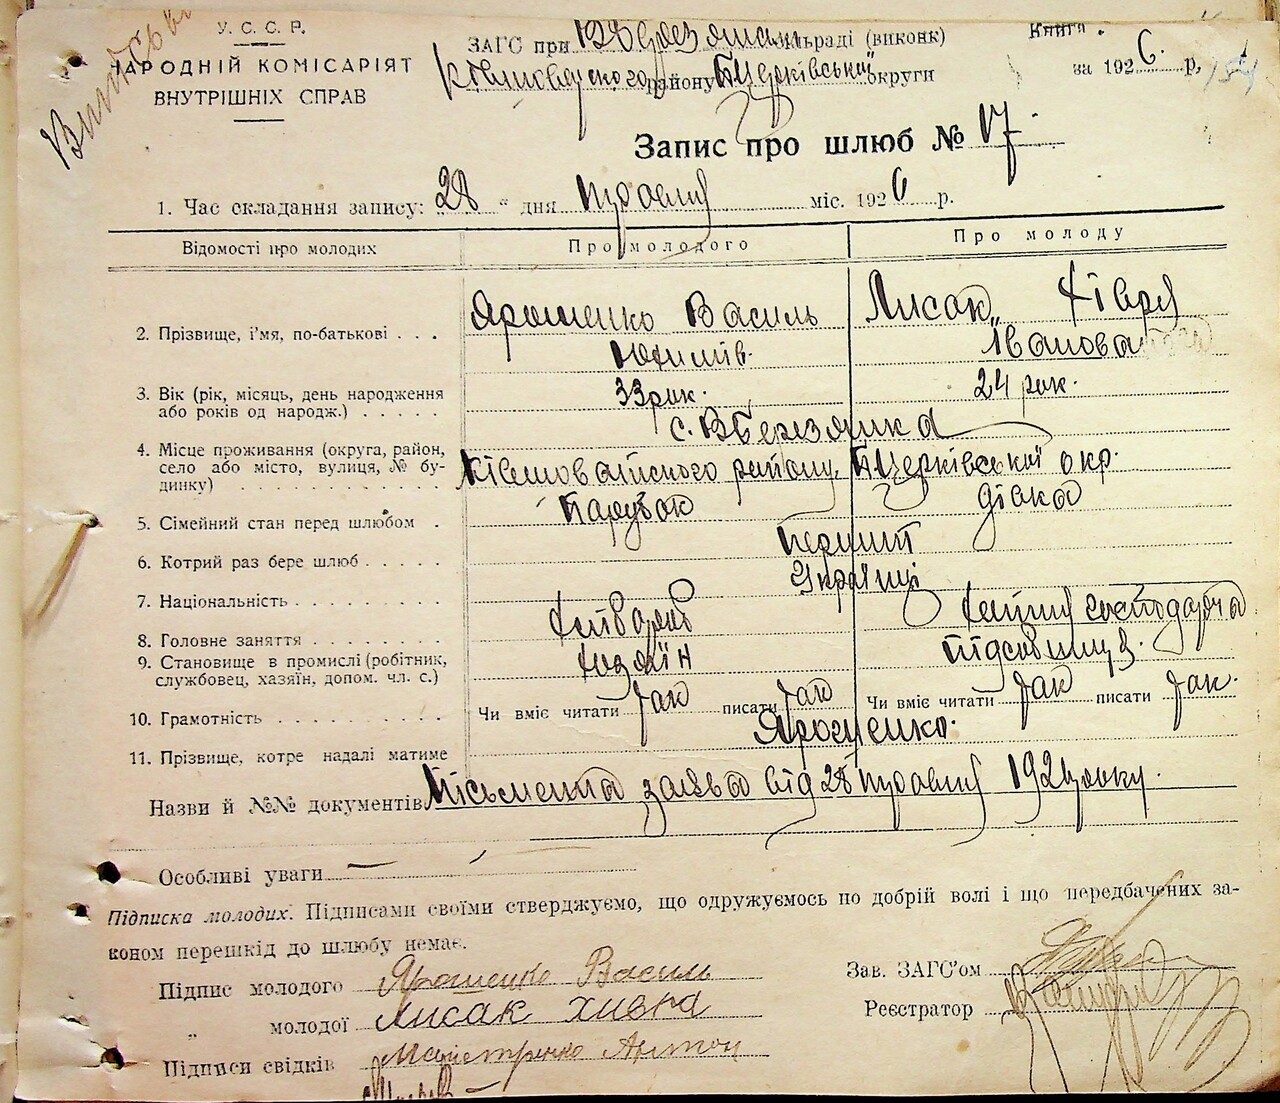 У. С. С. Р.
НАРОДНІЙ КОМІСАРІЯТ
ВНУТРІШНІХ СПРАВ
ЗАГС при В Березянській сільраді (виконк)
району БЦерківської округи
Книга
за 1926 р.
Запис про шлюб № 17
1. Час складання запису: 28 " дня травня міс. 1926 р.
Відомості про молодих Про молодого Про молоду
2. Прізвище, і'мя, по-батькові . . . Ярошенко Василь Лисак Хівря
Юхимів. Іванова
3. Вік (рік, місяць, день народження або років од народж.) . . . . . 33 рок. 24 рок.
с. ВБерезянка
4. Місце проживання (округа, район, село або місто, вулиця, № будинку) району БЦерківської окр.
5. Сімейний стан перед шлюбом . Парубок дівка
6. Котрий раз бере шлюб . . . . . перший
7. Національність . . . . . . . . . Українці
8. Головне заняття . . . . . . . Хлібороб хатня господарча
9. Становище в промислі (робітник, службовец, хазяїн, допом. чл. с.) хазяїн
10. Грамотність . . . . . . . . . . Чи вміє читати так писати так Чи вміє читати так писати так.
11. Прізвище, котре надалі матиме Ярошенко.
Назви й №№ документів Письменна заява від 28 травня 192 року.
Особливі уваги —
Підписка молодих. Підписами своїми стверджуємо, що одружуємось по добрій волі і що передбачених за-
коном перешкід до шлюбу немає.
Підпис молодого Ярошенко Василь
Зав. ЗАГС'ом
" молодої Лисак Хивра
Реєстратор
Підписи свідків Майстренко Антон